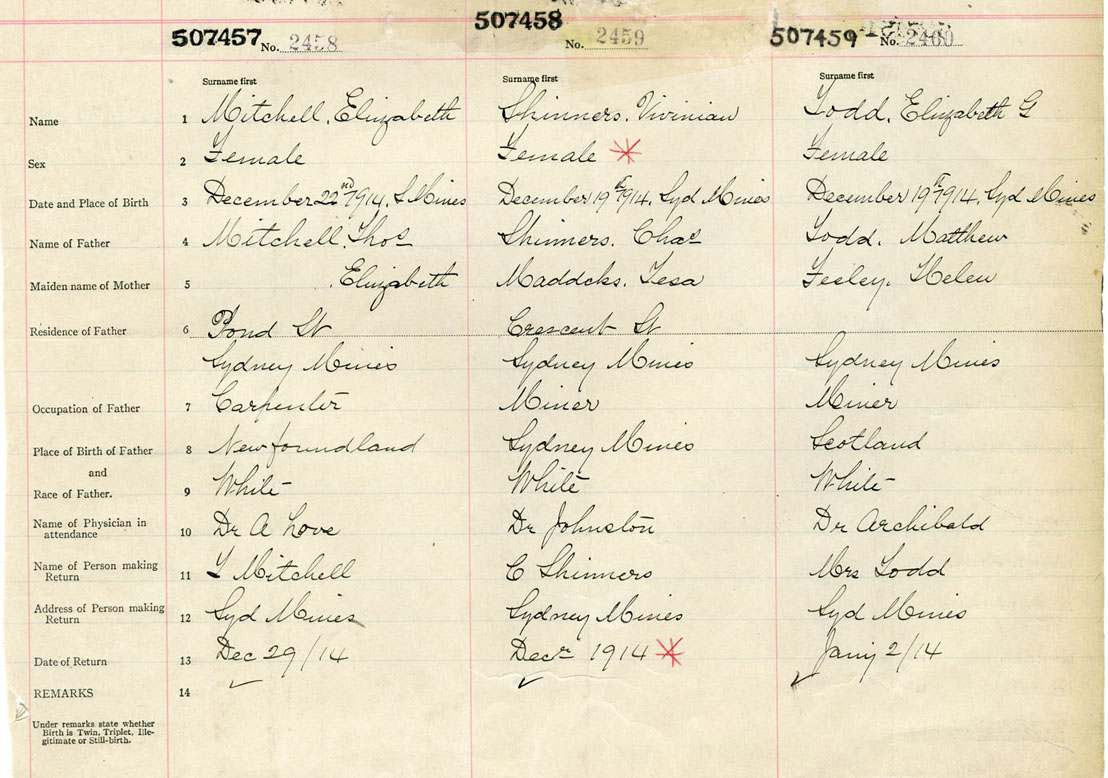 507457 No. 2458 507458 No. 2459 507459 No. 2460
Surname first Surname first Surname first
Name 1 Mitchell, Elizabeth Shinners, Vivinian Todd, Elizabeth G
Sex 2 Female Female Female
Date and Place of Birth 3 December 22nd 1914, S Mines December 19th 1914, Syd Mines December 19th 1914, Syd Mines
Name of Father 4 Mitchell, Thos Shinners, Chas Todd, Matthew
Maiden name of Mother 5 Elizabeth Maddcks, Tesa Feeley, Helen
Residence of Father 6 Pond St Crescent St
Sydney Mines Sydney Mines Sydney Mines
Occupation of Father 7 Carpenter Miner Miner
Place of Birth of Father 8 Newfoundland Sydney Mines Scotland
and
Race of Father. 9 White White White
Name of Physician in
attendance 10 Dr A Love Dr Johnston Dr Archibald
Name of Person making
Return 11 T Mitchell C Shinners Mrs Todd
Address of Person making
Return 12 Syd Mines Sydney Mines Syd Mines
Date of Return 13 Dec 29/14 Decr 1914 Jany 2/14
REMARKS 14
Under remarks state whether
Birth is Twin, Triplet, Ille-
gitimate or Still-birth.